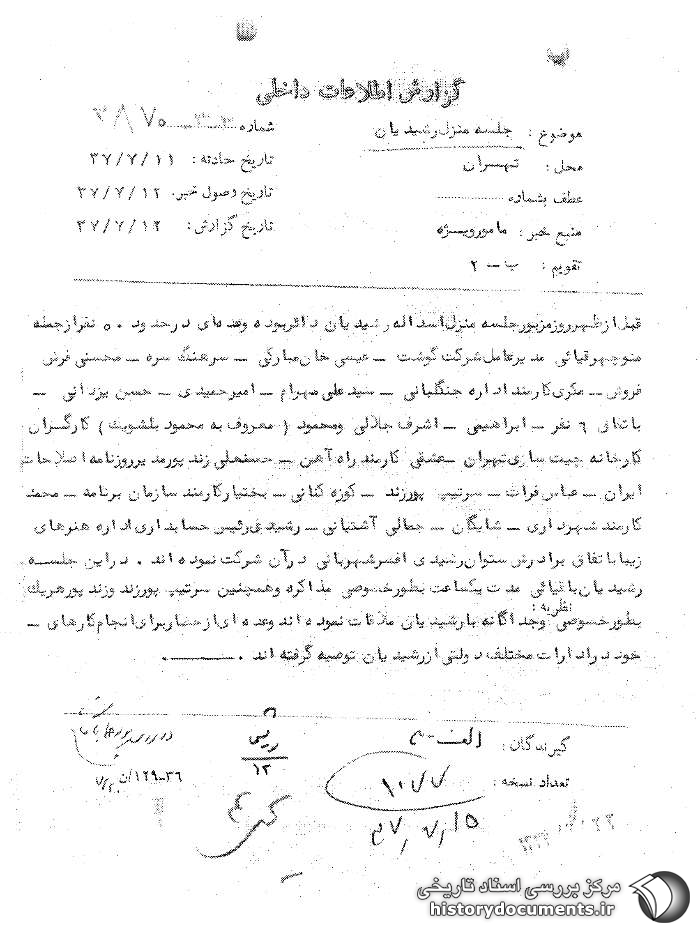 گزارش اطلاعات داخلی
موضوع : جلسه منزل رشیدیان
شماره ۳۸۷۰
محل : تهران
تاریخ حادثه : ۳۷/۷/۱۱
عطف بشماره
تاریخ وصول خبر. ۳۷/۷/۱۲
منبع خبر : مامور ویژه
تاریخ گزارش : ۳۷/۷/۱۲
تقویم : ب - ۲
قبل از ظهر روز مزبور جلسه منزل اسداله رشیدیان دائر بوده و عده‌ای در حدود ۵۰ نفر از جمله
منوچهر قیائی مدیر عامل شرکت گوشت - عیسی خان مبارکی - سرهنگ سره - محسنی فرش
فروش - مکری کارمند اداره جنگلبانی - سید علی مهرام - امیر حمیدی - حسن یزدانی -
باتفاق ۶ نفر - ابراهیمی - اشرف جلالی و محمود ( معروف به محمود بلشویک ) کارگران
کارخانه چیت سازی تهران - عشقی کارمند راه آهن - حسنعلی زند پور مدیر روزنامه اصلاحات
ایران - عباس فرات - سرتیپ پورزند - کوزه کنانی - بختیار کارمند سازمان برنامه - محمد
کارمند شهرداری - شایگان - جمالی آشتیانی - رشیدی رئیس حسابداری اداره هنرهای
زیبا باتفاق برادرش ستوان رشیدی افسر شهربانی در آن شرکت نموده اند . در این جلسه
رشیدیان با قیائی مدت یکساعت بطور خصوصی مذاکره و همچنین سرتیپ پورزند و زند پور هریک
نظریه :
بطور خصوصی و جداگانه با رشیدیان ملاقات نموده اند و عده ای از حضار برای انجام کارهای -
خود در ادارات مختلف دولتی از رشیدیان توصیه گرفته اند .
گیرندگان : الف - م
تعداد نسخه :
۱۰۷۷
۳۷/۷/۱۵
۱۲
۱۲۹-۳۶/ن
مرکز بررسی اسناد تاریخی
historydocuments.ir